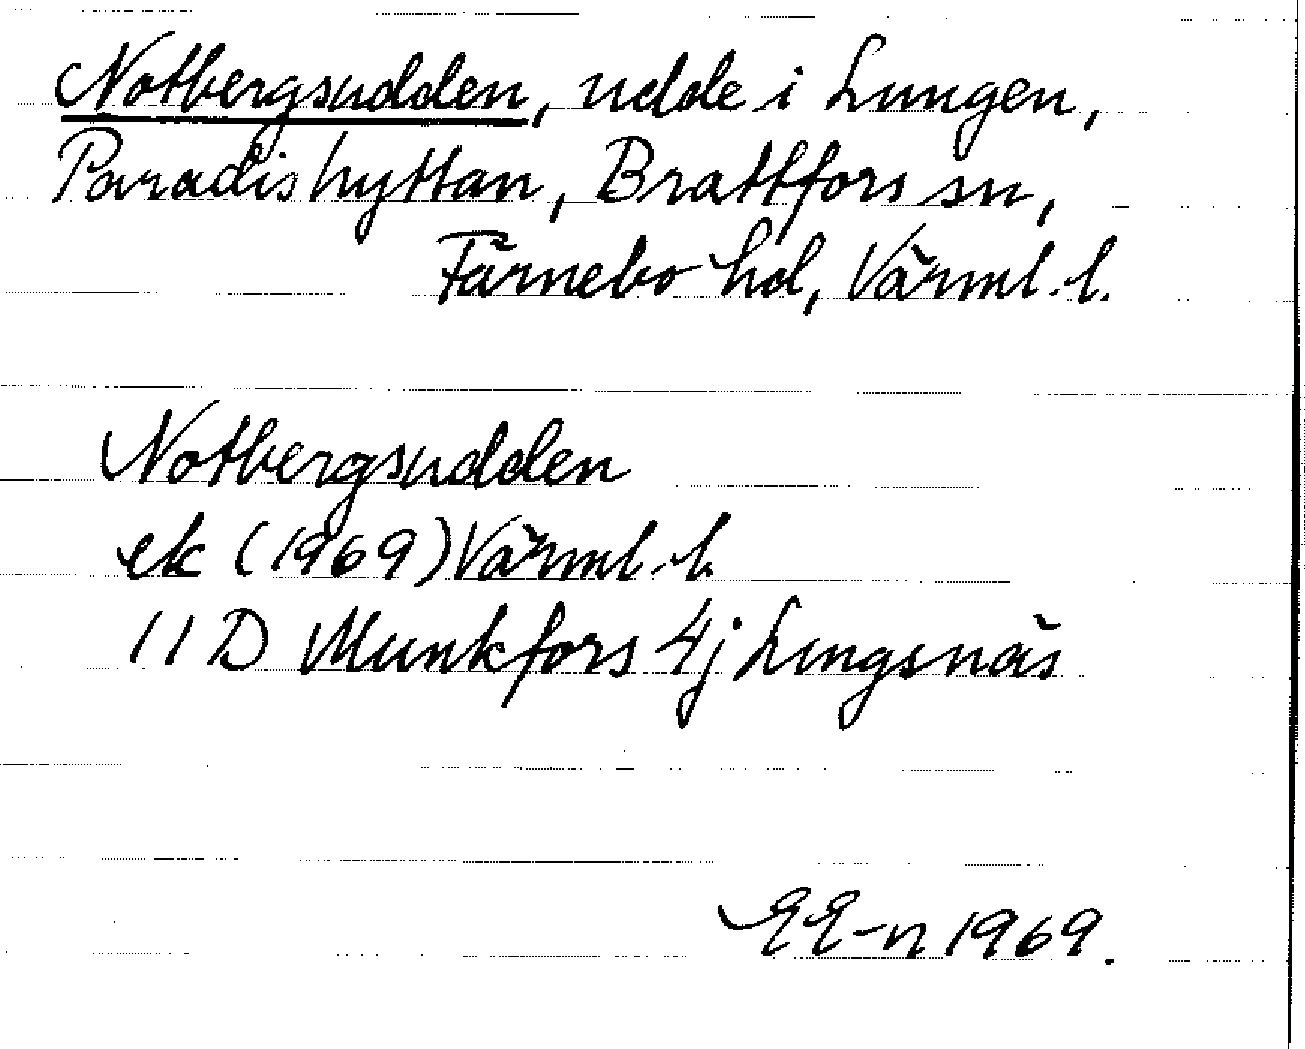 Notbergsudden, udde i Lungen,
Paradishyttan, Brattfors sn,
Färnebo hd, Värml. l.
Notbergsudden
ek (1969) Värml. l.
11 D Munkfors 4j Lungsnäs
EE-n 1969.